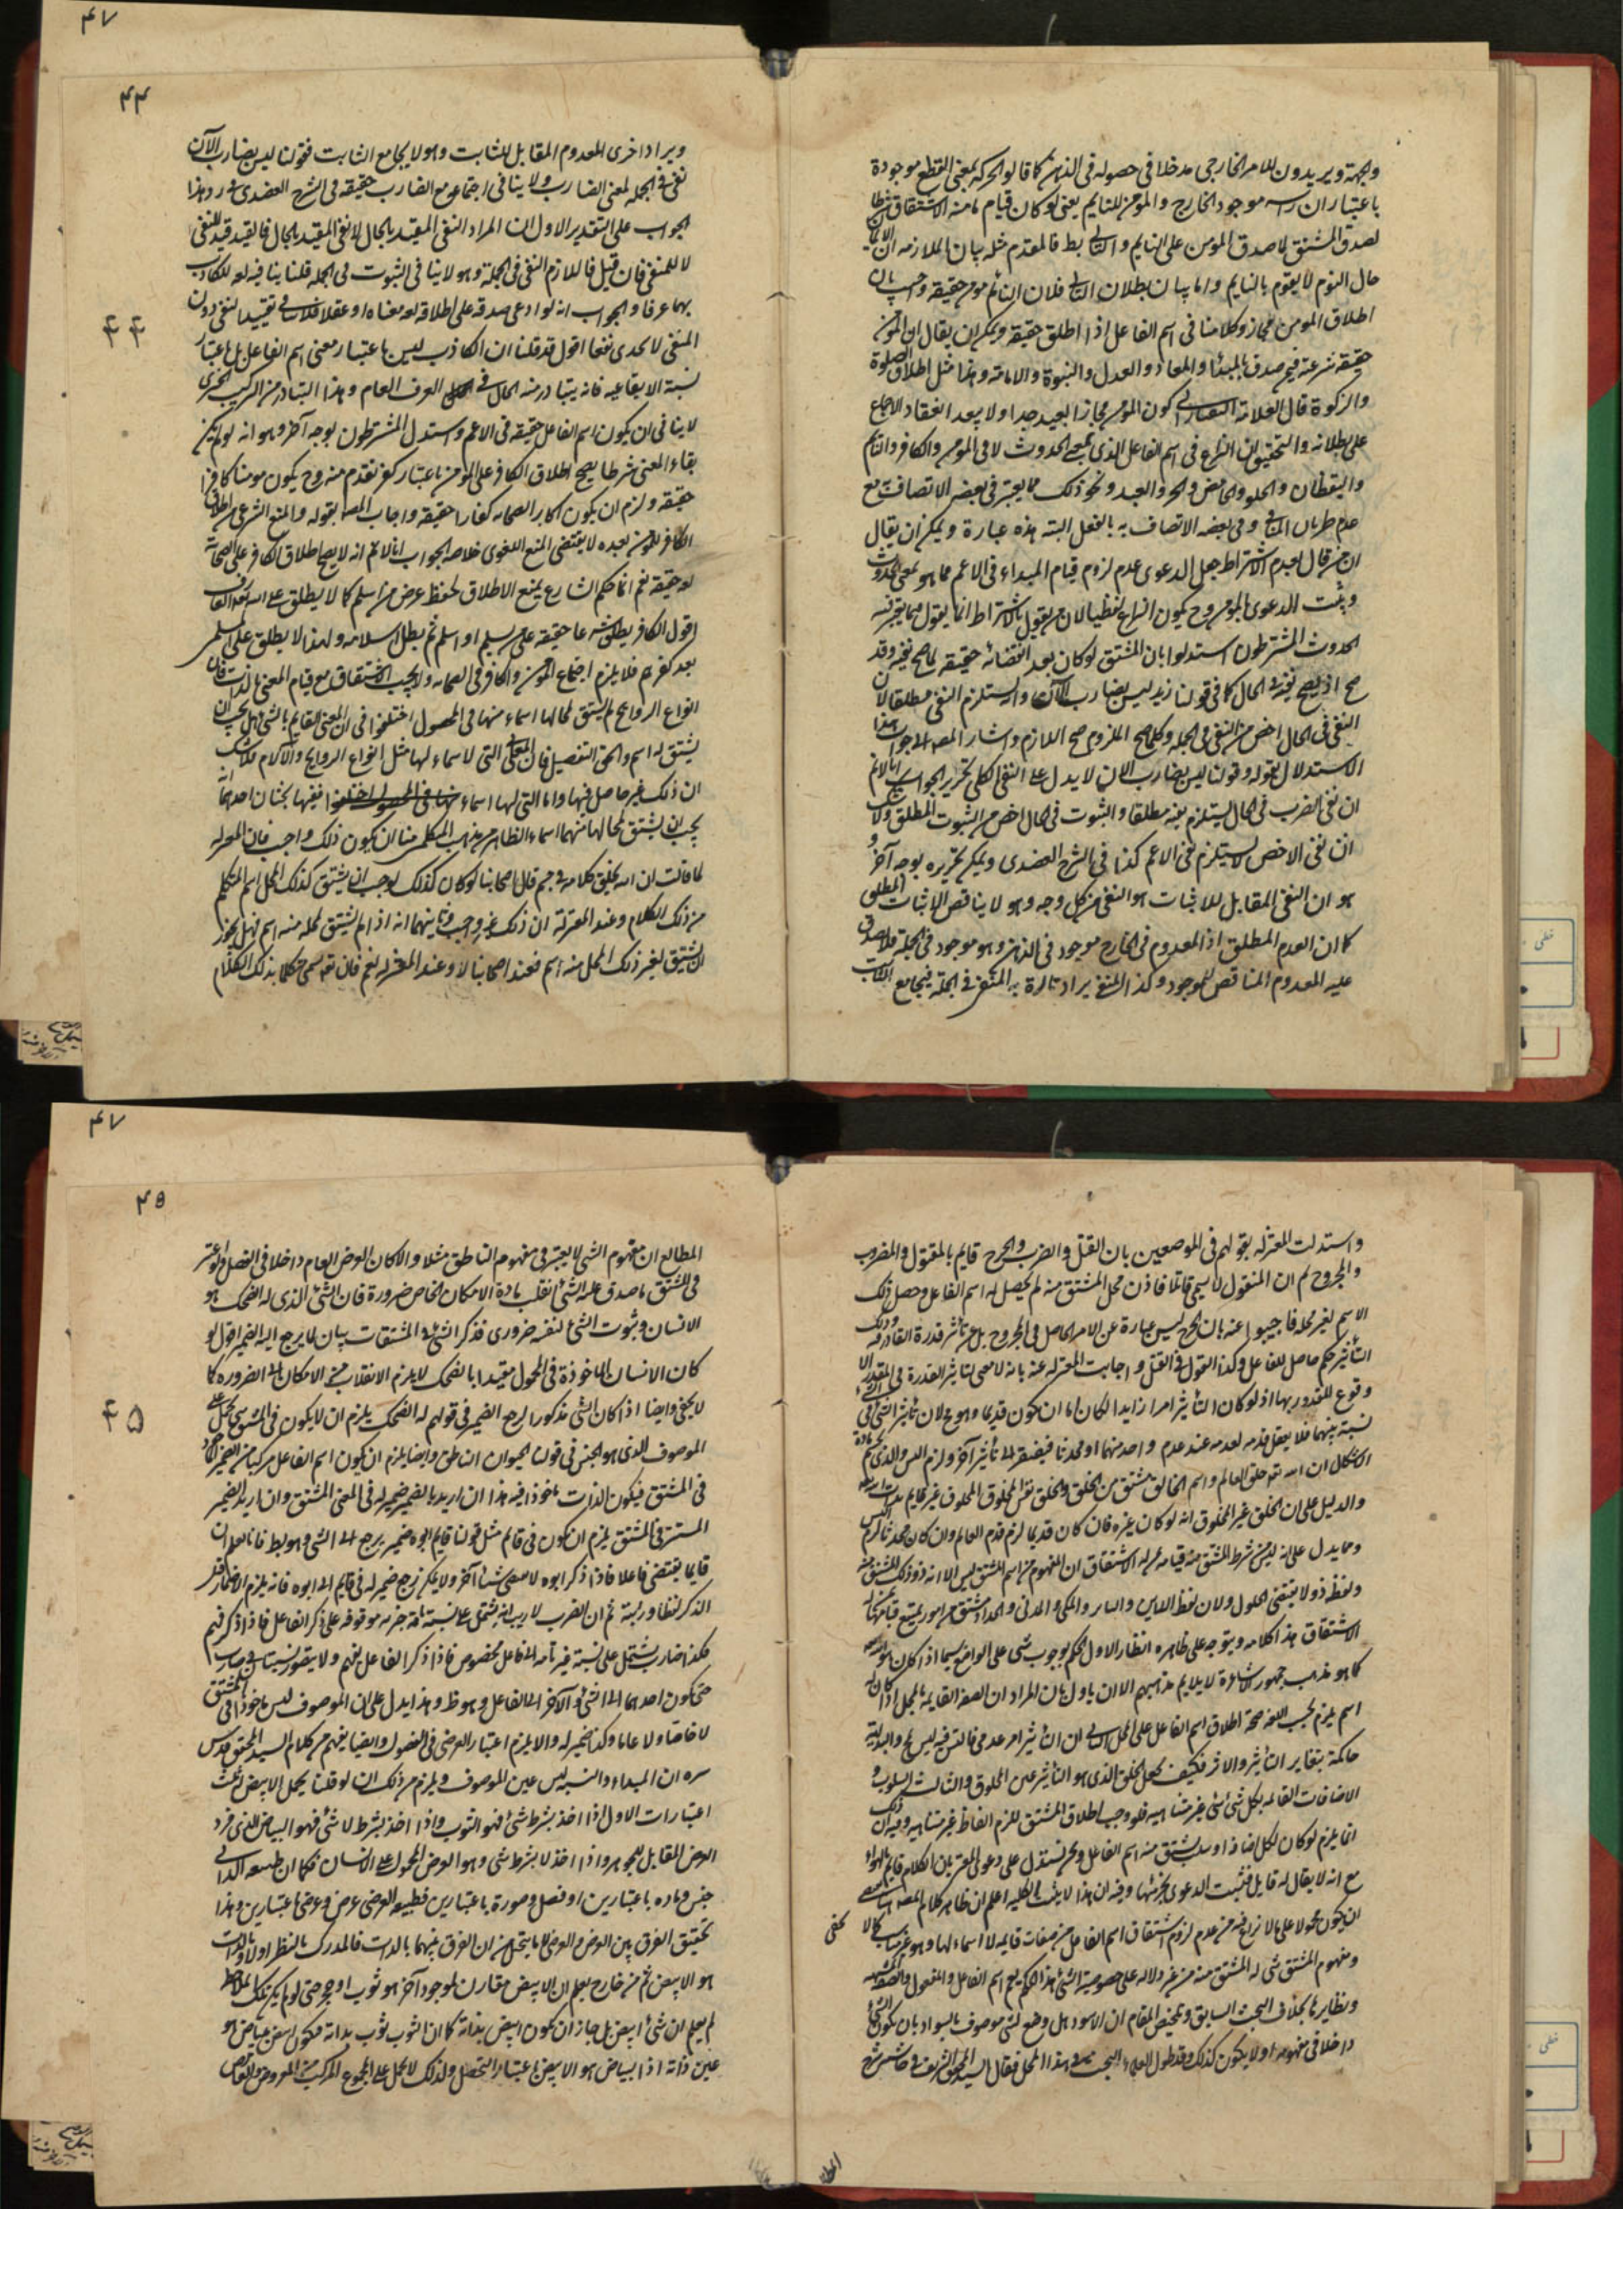 ۴۷
۴۴
والجهة ويريدون للامر الخارجى مدخلا فى حصوله فى الذهن كما قالوا الحركة بمعنى القطع موجودة
باعتبار ان راسمه موجود الخارج والمؤمن للنايم يعنى لو كان قيام ما منه الاشتقاق شرطا
لصدق المشتق لما صدق المومن على النايم والتالى بط فالمقدم مثله بيان الملازمة ان الايمان
حال النوم لا يقوم بالنايم واما بيان بطلان التالى فلان النائم مومن حقيقة وحسب بان
اطلاق المومن مجاز وكلامنا فى اسم الفاعل اذا اطلق حقيقة ويمكن ان يقال ان المؤمن
حقيقة شرعية فيمن صدق بالمبدأ والمعاد والعدل والنبوة والامامة وهذا مثل اطلاق الصلوة
والزكوة قال العلامة كون المومن مجازا بعيد جدا ولا يبعد انعقاد الاجماع
على بطلانه والتحقيق ان النزاع فى اسم الفاعل الذى بمعنى الحدوث لا فى المومن والكافر والنائم
واليقظان والحلو والحامض والحر والعبد ونحو ذلك مما يعتبر فى بعضه الاتصاف به مع
عدم طريان المنافى وفى بعضه الاتصاف به بالفعل البتة هذه عبارة ويمكن ان يقال
ان من قال بعدم الاشتراط جعل الدعوى عدم لزوم قيام المبداء فى الاعم مما هو بمعنى الحدوث
ويثبت الدعوى بالمومن وح يكون النزاع لفظيا لان من يقول بالاشتراط انما يقول فيما يعتبر فيه
الحدوث المشترطون استدلوا بان المشتق لو كان بعد انقضائه حقيقة لما صح نفيه وقد
صح اذ يصح نفيه فى الحال كما فى قولنا زيد ليس بضارب الآن واستلزم النفى مطلقا لان
النفى فى الحال اخص من النفى فى الجملة وكلما صح الملزوم صح اللازم واشار المصه الى جواب هذا
الاستدلال بقوله وقولنا ليس بضارب الان لا يدل على النفى الكلى تحرير الجواب انا لانم
ان نفى الضرب فى الحال يستلزم نفيه مطلقا والثبوت فى الحال اخص من الثبوت المطلق ولا شك
ان نفى الاخص لا يستلزم نفى الاعم كذا فى الشرح العضدى ويمكن تحريره بوجه آخر و
هو ان النفى المقابل للاثبات هو النفى من كل وجه وهو لا يناقض الاثبات المطلق
كما ان العدم المطلق اذ المعدوم فى الخارج موجود فى الذهن وهو موجود فى الجملة فلا صدق
عليه المعدوم المناقض للموجود وكذا المنفى يراد تارة به المنفى فى الجملة فيجامع الثابت
ويراد اخرى المعدوم المقابل للثابت وهو لا يجامع الثابت فقولنا ليس بضارب الآن
نفى فى الجملة لمعنى الضارب ولا ينافى اجتماعه مع الضارب حقيقة فى الشرح العضدى ورد هذا
الجواب على التقدير الاول ان المراد النفى المقيد بالحال لا نفى المقيد بالحال فالقيد قيد للنفى
لا للمنفى فان قيل فاللازم النفى فى الجملة وهو لا ينافى الثبوت فى الجملة قلنا ينافيه لغة للتكاذب
۴۴
بهما عرفا والجواب انه لو ادعى صدقه على اطلاقه لغة معناه او عقلا فلا تقييد النفى دون
المنفى لا يجدى نفعا اقول قد قلنا ان التكاذب ليس باعتبار معنى اسم الفاعل بل باعتبار
نسبة الايقاعية فانه يتبادر منه الحال فى العرف العام وهذا التبادر من التركيب الخبرى
لا ينافى ان يكون اسم الفاعل حقيقة فى الاعم واستدل المشترطون بوجه آخر وهو انه لو لم يكن
بقاء المعنى شرطا يصح اطلاق الكافر على المومن باعتبار كفر تقدم منه وح يكون مومنا كافرا
حقيقة ولزم ان يكون اكابر الصحابه كفارا حقيقة واجاب المصه بقوله والمنع الشرعى من اطلاق
الكافر للمومن بعده لا يقتضى المنع اللغوى خلاصة الجواب انا لانم انه لا يصح اطلاق الكافر على الصحابة
لغة حقيقة نعم انما حكم الشارع بمنع الاطلاق لحفظ عرض من اسلم كما لا يطلق على الله
اقول الكافر يطلق شرعا حقيقة على من لم يسلم او اسلم ثم بطل اسلامه ولهذا لا يطلق على المسلمين
بعد كفرهم فلا يلزم اجتماع المؤمن والكافر فى الصحابه ولا يجب الاشتقاق مع قيام المعنى بالذات فان
انواع الروايح لم يشتق لمحالها اسماء منها فى المحصول اختلفوا فى ان المعنى القايم بالشئ هل يجب ان
يشتق له اسم والحق التفصيل فان المعانى التى لا اسماء لها مثل انواع الروايح والآلام فلا شك
ان ذلك غير حاصل فيها واما التى لها اسماء ففيها بحثان احدهما
يجب ان يشتق لمحالها منهما اسماء الظاهر من مذهب المتكلمين منا ان يكون ذلك واجب فان المعتزلة
لما قالت ان الله يخلق كلامه فى جسم قال اصحابنا لو كان كذلك لوجب ان يشتق كذلك المحل اسم المتكلم
من ذلك الكلام وعند المعتزلة ان ذلك غير واجب وثانيهما انه اذا لم يشتق لمحله منه اسم فهل يجوز
ان يشتق لغير ذلك المحل منه اسم فعند اصحابنا لا وعند المعتزلة نعم فان الله تعه يسمى متكلما بذلك الكلام
۴۷
۴۵
واستدلت المعتزلة بقولهم فى الموضعين بان القتل والضرب والجرح قايم بالمقتول والمضروب
والمجروح ثم ان المقتول لا يسمى قاتلا فاذن محل المشتق منه لم يحصل له اسم الفاعل وحصل ذلك
الاسم لغير محله فاجيبوا عنه بان الجرح ليس عبارة عن الامر الحاصل فى المجروح بل عن تأثير قدرة القادر فيه وذلك
التأثير حكم حاصل للفاعل وكذا القول فى القتل واجابت المعتزلة عنه بانه لا معنى لتأثير القدرة فى المقدور الا
وقوع المقدور بها اذ لو كان التأثير امرا زايدا لكان اما ان يكون قديما وهو مح لان تأثير الشئ فى الشئ
نسبة بينهما فلا يعقل قدمه لعدمه عند عدم واحد منهما او محدثا فيفتقر الى تأثير آخر ولزم التس والذى
الاشكال ان الله تعه خلق العالم واسم الخالق مشتق من الخلق والخلق نفس المخلوق والمخلوق غير قايم
والدليل على ان الخلق غير المخلوق انه لو كان غيره فان كان قديما لزم قدم العالم وان كان محدثا لزم التس
ومما يدل على انه ليس من شرط المشتق منه قيامه بمن له الاشتقاق ان المفهوم من اسم المشتق ليس الا انه ذو ذلك المشتق منه
ولفظ ذو لا يقتضى الحلول ولان لفظ اللابن والتامر والمكى والمدنى والحداد مشتق من امور يمتنع قيامها بمن له
الاشتقاق هذا كلامه ويتوجه على ظاهره انظار الاول الحكم بوجوب شئ على الواضع سيما اذا كان هو الله
كما هو مذهب جمهور الاشاعرة لا يلايم مذهبهم الا ان ياول بان المراد ان الصفة القايمة بالمحل اذا كان له
اسم يلزم بحسب اللغة صحة اطلاق اسم الفاعل على المحل الثانى ان التأثير امر عدمى فالتس فيه ليس بمح والبداهة
حاكمة بتغاير التأثير والاثر فكيف يجعل الخلق الذى هو التأثير عين المخلوق والثالث السلوب و
الاضافات القايمة بكل شئ شئ غير متناهيه فلو وجب اطلاق المشتق للزم الفاظ غير متناهيه وفيه ان ذلك
انما يلزم لو كان لكل اضافة او سلب يشتق منه اسم الفاعل ونحن نستدل على دعوى المعتزلة بان الكلام قايم بالهواء
مع انه لا يقال له قايل فيثبت الدعوى بجزئيتها وفيه ان هذا لا يثبت الكلية اعلم ان ظاهر كلام المصه
ان يكون محمولا على ما لا نزاع فيه من عدم لزوم اشتقاق اسم الفاعل من صفات قايمه لا اسماء لها وهو غير مناسب كما لا يخفى
ومفهوم المشتق شئ له المشتق منه من غير دلالة على خصوصية الشئ هذا الحكم يعم اسم الفاعل والمفعول والصفة المشبهه
ونظايرها بخلاف البحث السابق وتلخيص المقام ان الاسود هل وضع لشئ موصوف بالسواد بان يكون الشئ
داخلا فى مفهومه او لا يكون كذلك وقد طول العلماء البحث فى هذا المحل فقال السيد المحقق الشريف فى حاشية شرح
المطالع ان مفهوم الشئ لا يعتبر فى مفهوم الناطق مثلا والا لكان العرض العام داخلا فى الفصل ولو اعتبر
فى المشتق ما صدق عليه الشئ انقلب مادة الامكان الخاص ضرورة فان الشئ الذى له الضحك هو
الانسان وثبوت الشئ لنفسه ضرورى فذكر الشئ فى المشتقات بيان لما يرجع اليه الضمير اقول لو
كان الانسان الماخوذة فى المحمول مقيدا بالضحك لا يلزم الانقلاب من الامكان الى الضرورة كما
۴۵
لا يخفى وايضا اذا كان الشئ مذكورا لرجع الضمير فى قولهم له الضحك يلزم ان لا يكون فى الشمسى محمل على
الموصوف الذى هو الجنس فى قولنا الحيوان الناطق وايضا يلزم ان يكون اسم الفاعل مركبا من الضمير
فى المشتق فيكون الذات ماخوذا فيه هذا ان اريد بالضمير ضمير له فى المعنى المشتق وان اريد الضمير
المستتر فى المشتق يلزم ان يكون فى قايم مثل قولنا قايم ابوه ضمير يرجع الى الشئ وهو بط فانا نعلم ان
قايما يقتضى فاعلا فاذا ذكر ابوه لا يقتضى شيئا آخر ولا يمكن رجع ضمير له فى قايم الى ابوه فانه يلزم الاضمار قبل
الذكر لفظا ورتبة ثم ان الضرب لا ريب انه يشتمل على نسبة تامة خبريه موقوفة على ذكر الفاعل فاذا ذكر فهم
فكذا ضارب يشتمل على نسبة غير تامة الى فاعل مخصوص فاذا ذكر الفاعل فهم ولا يتصور نسبتان فى ضارب
حتى يكون احدهما الى الشئ والآخر الى الفاعل وهو ظ وهذا يدل على ان الموصوف ليس ماخوذا فى المشتق
لا خاصا ولا عاما وكذا ضمير له والا يلزم اعتبار العرضى فى الفصول وايضا يفهم من كلام السيد المحقق قدس
سره ان المبداء والنسبة ليس عين الموصوف ويلزم من ذلك ان لو قلنا يحمل الابيض ثلث
اعتبارات الاول اذا اخذ بشرط شئ فهو الثوب واذا اخذ بشرط لا شئ فهو البياض الذى فرد
العرض المقابل للجوهر واذا اخذ لا بشرط شئ وهو العرض المحمول على الانسان فكما ان طبيعة الذاتى
جنس وماده باعتبارين او فصل وصورة باعتبارين فطبيعة العرضى عرض وعرضى باعتبارين وهذا
تحقيق الفرق بين العرض والعرضى لا ما يتخيل من ان الفرق بينهما بالذات فالمدرك بالنظر اولا وبالذات
هو الابيض ثم من خارج يعلم ان الابيض مقارن لموجود آخر هو ثوب او حجر حتى لو لم يكن تلك الملاحظة
لم يعلم ان شئ ابيض بل جاز ان يكون ابيض بذاته كما ان الثوب ثوب بذاته فيكون ابيض ببياض هو
عين ذاته اذ البياض هو الابيض باعتبار التحصل ولذلك لا يحمل على المجموع المركب من المعروض والعارض
خطى
خطى